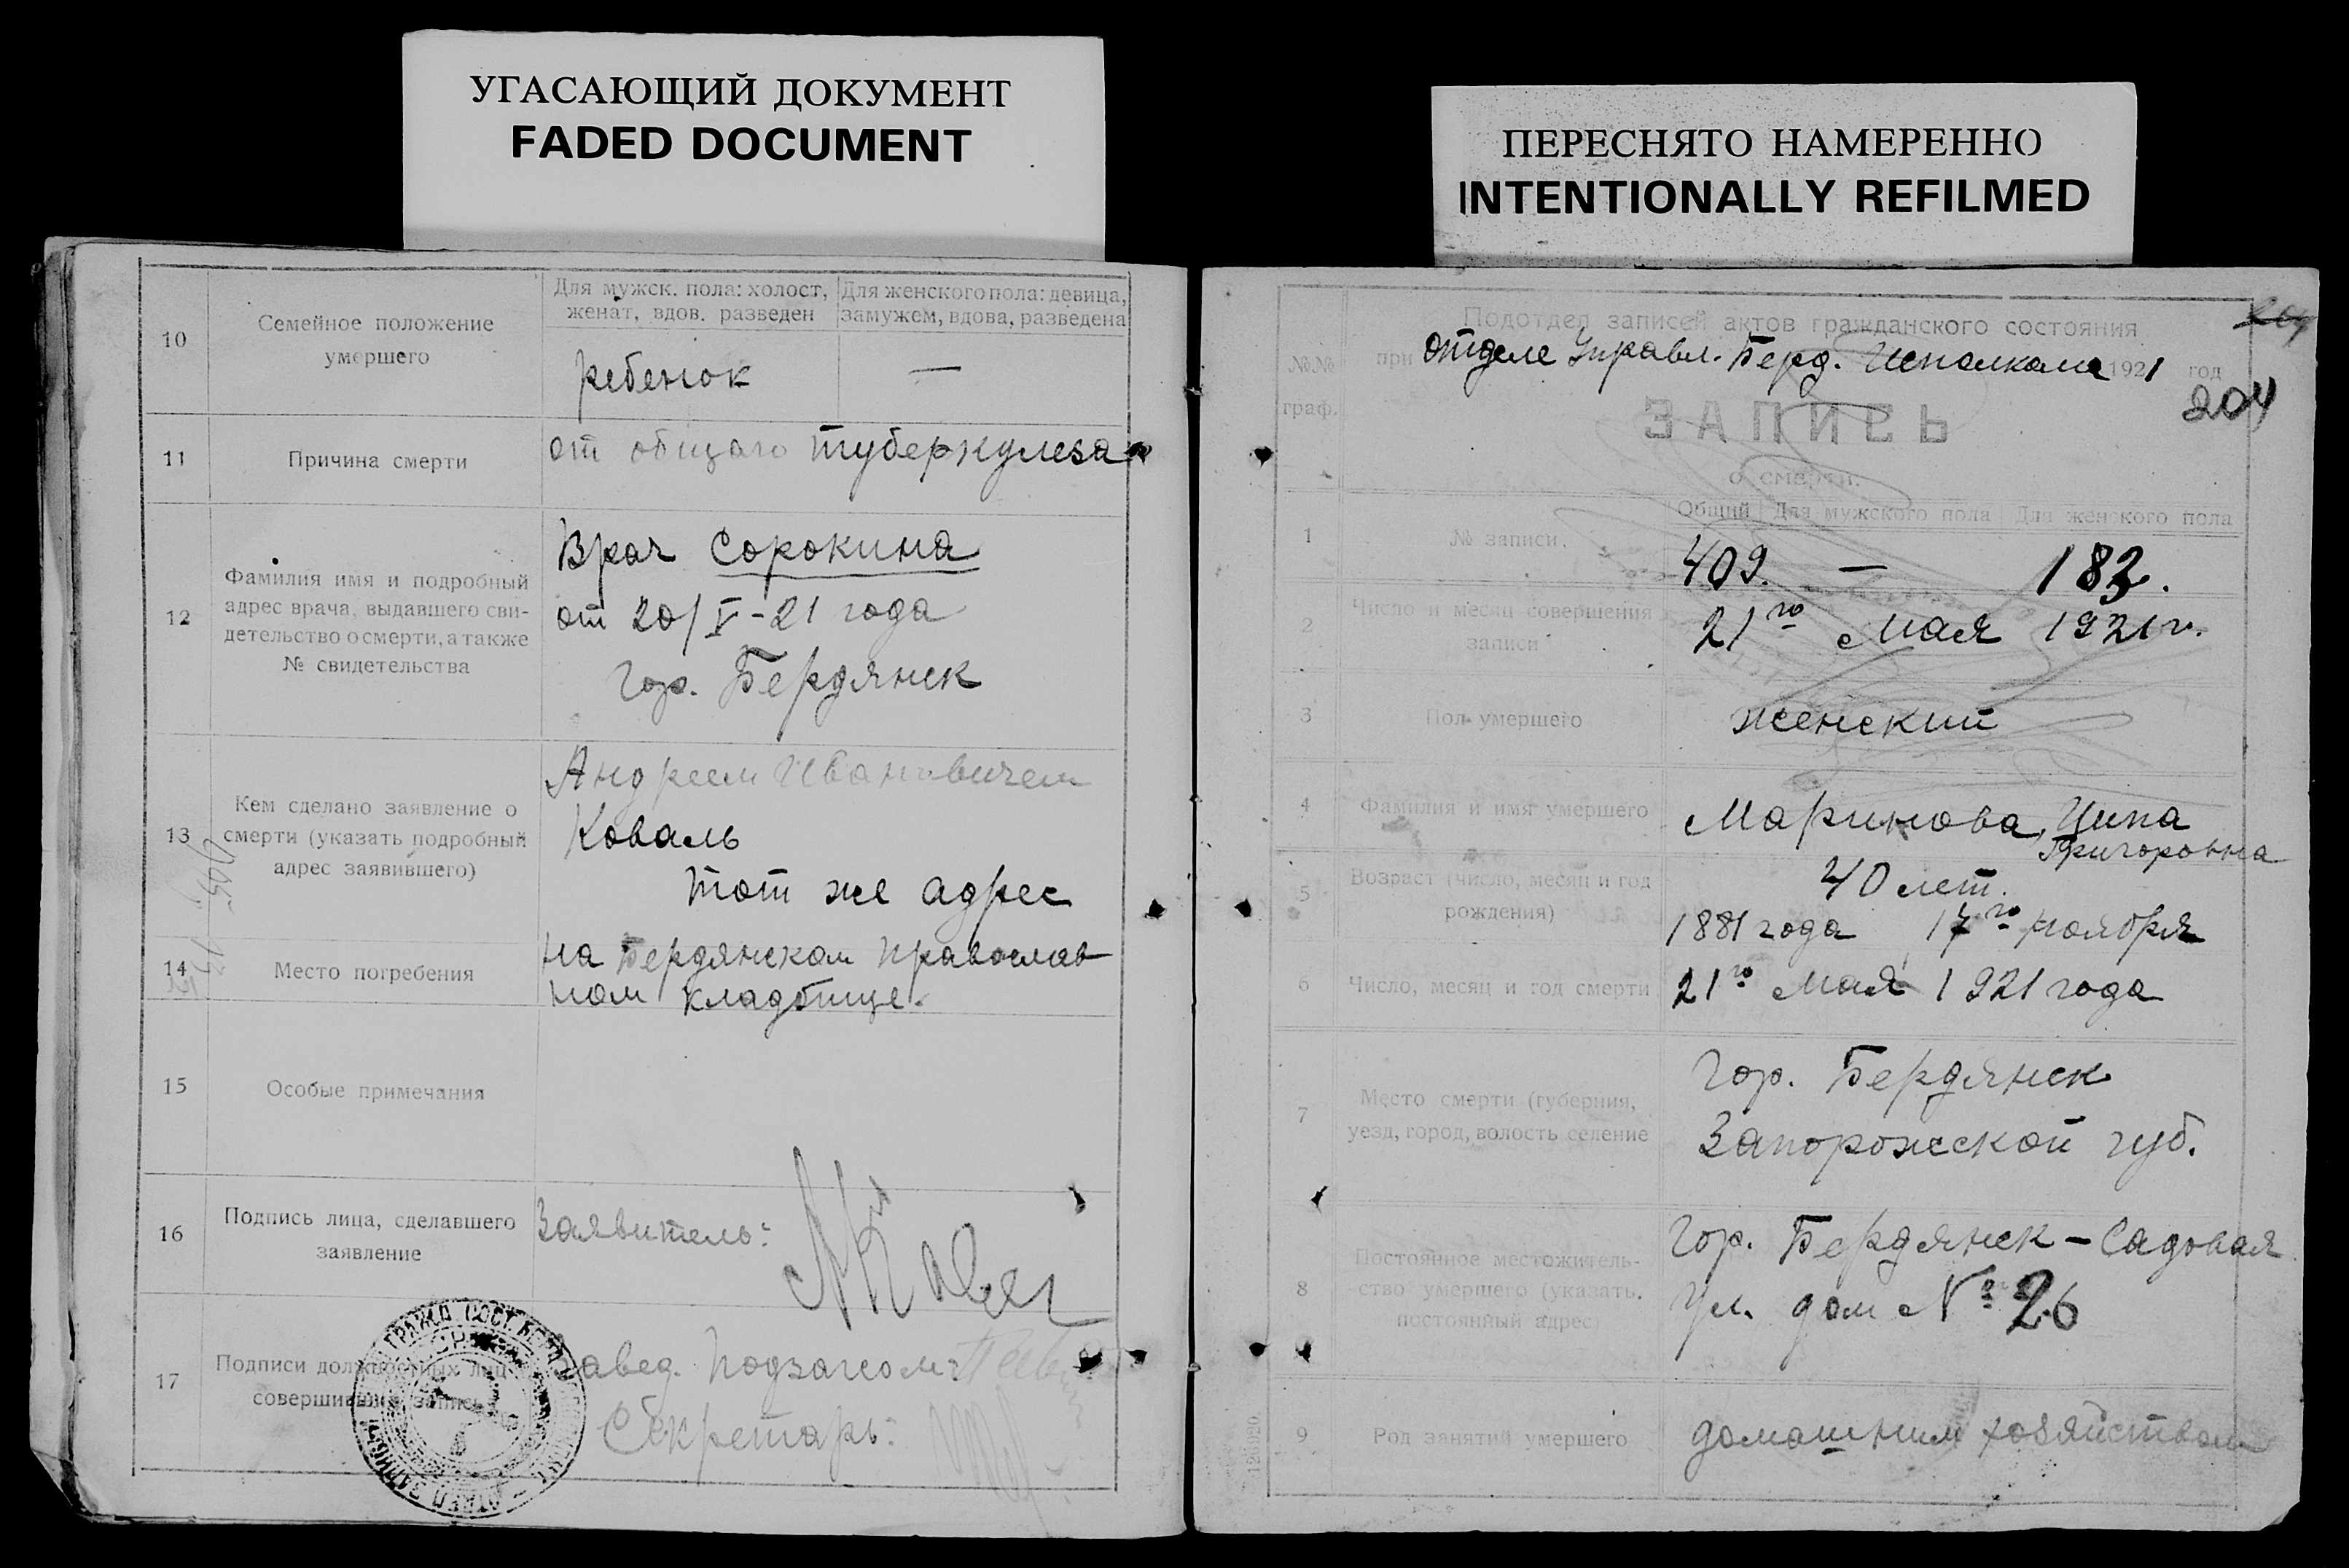 УГАСАЮЩИЙ ДОКУМЕНТ
FADED DOCUMENT
10
Семейное положение
умершего
Для мужск. пола: холост,
женат, вдов. разведен
Для женского пола: девица,
замужем, вдова, разведена
ребенок
—
11
Причина смерти
от общаго туберкулеза
12
Фамилия имя и подробный
адрес врача, выдавшего сви-
детельство о смерти, а также
№ свидетельства
Врач Сорокина
от 20/V-21 года
гор. Бердянск
13
Кем сделано заявление о
смерти (указать подробный
адрес заявившего)
Андреем Ивановичем
Коваль
тот же адрес
14
Место погребения
на Бердянском православ
ном кладбище.
15
Особые примечания
16
Подпись лица, сделавшего
заявление
Заявитель:
17
Подписи должностных лиц
совершивших запись
Завед. Подзагсом:
Секретарь:
ПЕРЕСНЯТО НАМЕРЕННО
INTENTIONALLY REFILMED
№№
граф.
Подотдел записей актов гражданского состояния
при отделе Управл. Берд. Исполкома 1921 год
204
ЗАПИСЬ
о смерти.
1
№ записи.
Общий
Для мужского пола
Для женского пола
409.
—
183.
2
Число и месяц совершения
записи
21го Мая 1921 г.
3
Пол умершего
женский
4
Фамилия и имя умершего
Маринова, Ципа
Григоровна
5
Возраст (число, месяц и год
рождения)
40 лет.
1881 года 17го ноября
6
Число, месяц и год смерти
21го Мая 1921 года
7
Место смерти (губерния,
уезд, город, волость селение
Гор. Бердянск
Запорожской губ.
8
Постоянное местожитель-
ство умершего (указать.
постоянный адрес)
Гор. Бердянск – Садовая
ул. дом № 26
9
Род занятий умершего
домашним хозяйством